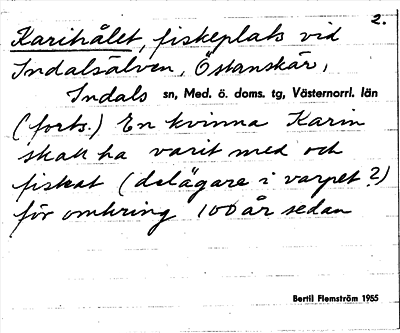 2.
Karihålet, fiskeplats vid
Indalsälven, Östanskär,
Indals sn, Med. ö. doms. tg, Västernorrl. län
(forts.) En kvinna Karin
skall ha varit med och
fiskat (delägare i varpet?)
för omkring 100 år sedan
Bertil Flemström 1955